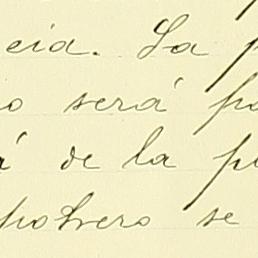 cia. La p
o será pa
á de la p
potrero se